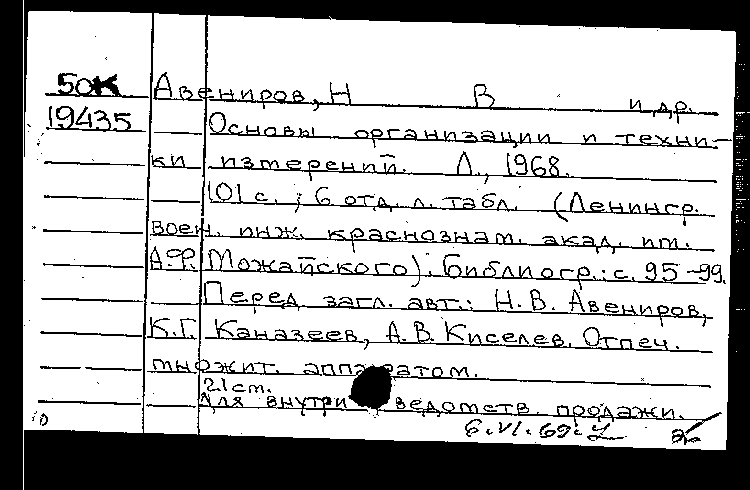 50к Авениров, Н В и др.
19435 Основы организации и техни-
ки измерений. Л., 1968.
101 с.; 6 отд. л. табл. (Ленингр.
воен. инж. краснознам. акад. им.
А.Ф. Можайского). Библиогр.: с. 95-99.
Перед загл. авт.: Н.В. Авениров,
К.Г. Каназеев, А.В. Киселев. Отпеч.
множит. аппаратом.
21 см.
Для внутриведомств. продажи.
6.VI.69г.